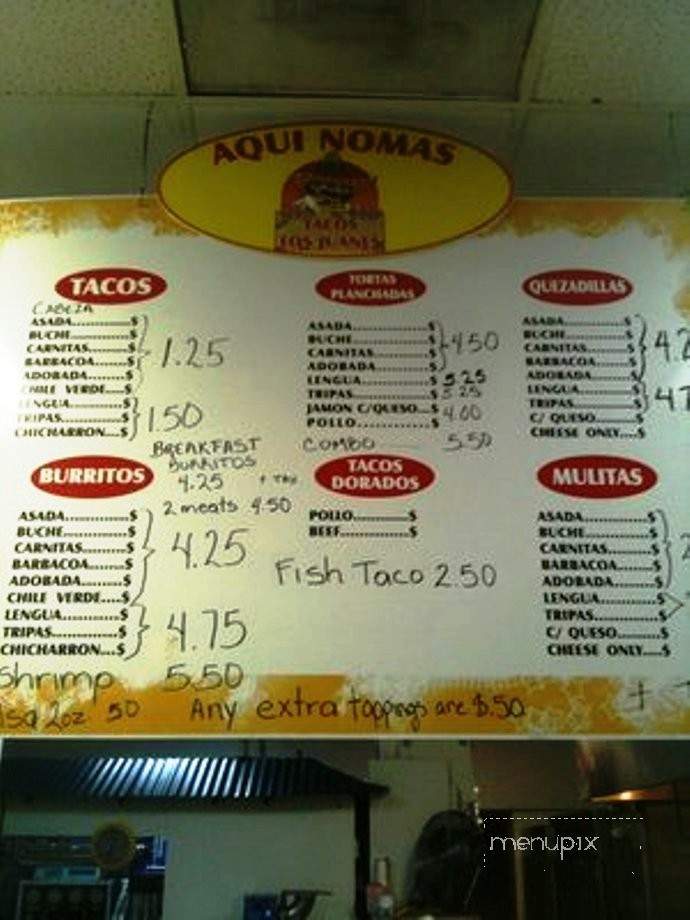 AQUI NOMAS
TACOS
LOS JUANES
TACOS
CABEZA
ASADA..............$
BUCHE..............$
CARNITAS..........$
BARBACOA........$
ADOBADA..........$
CHILE VERDE....$
1.25
LENGUA............$
TRIPAS..............$
CHICHARRON...$
1.50
TORTAS
PLANCHADAS
ASADA..............$
BUCHE..............$
CARNITAS..........$
ADOBADA..........$
4.50
LENGUA............$ 5.25
TRIPAS..............$ 5.25
JAMON C/QUESO...$ 4.00
POLLO..............$
COMBO 5.50
QUEZADILLAS
ASADA..............$
BUCHE..............$
CARNITAS..........$
BARBACOA........$
ADOBADA..........$
LENGUA............$
TRIPAS..............$
C/ QUESO..........$
CHEESE ONLY....$
BREAKFAST
BURRITOS
4.25 + TAX
2 meats 4.50
BURRITOS
ASADA..............$
BUCHE..............$
CARNITAS..........$
BARBACOA........$
ADOBADA..........$
CHILE VERDE....$
4.25
LENGUA............$
TRIPAS..............$
CHICHARRON...$
4.75
Shrimp 5.50
TACOS
DORADOS
POLLO..............$
BEEF................$
Fish Taco 2.50
MULITAS
ASADA..............$
BUCHE..............$
CARNITAS..........$
BARBACOA........$
ADOBADA..........$
LENGUA............$
TRIPAS..............$
C/ QUESO..........$
CHEESE ONLY....$
2oz 50
Any extra toppings are $.50
menupix